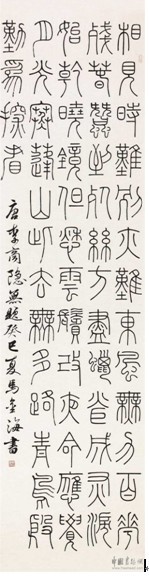 相見時難別亦難東風無力百花
殘春蠶到死絲方盡蠟炬成灰淚
始乾曉鏡但愁雲鬢改夜吟應覺
月光寒蓬山此去無多路青鳥殷
勤為探看
唐李商隱無題癸巳夏馬金海書